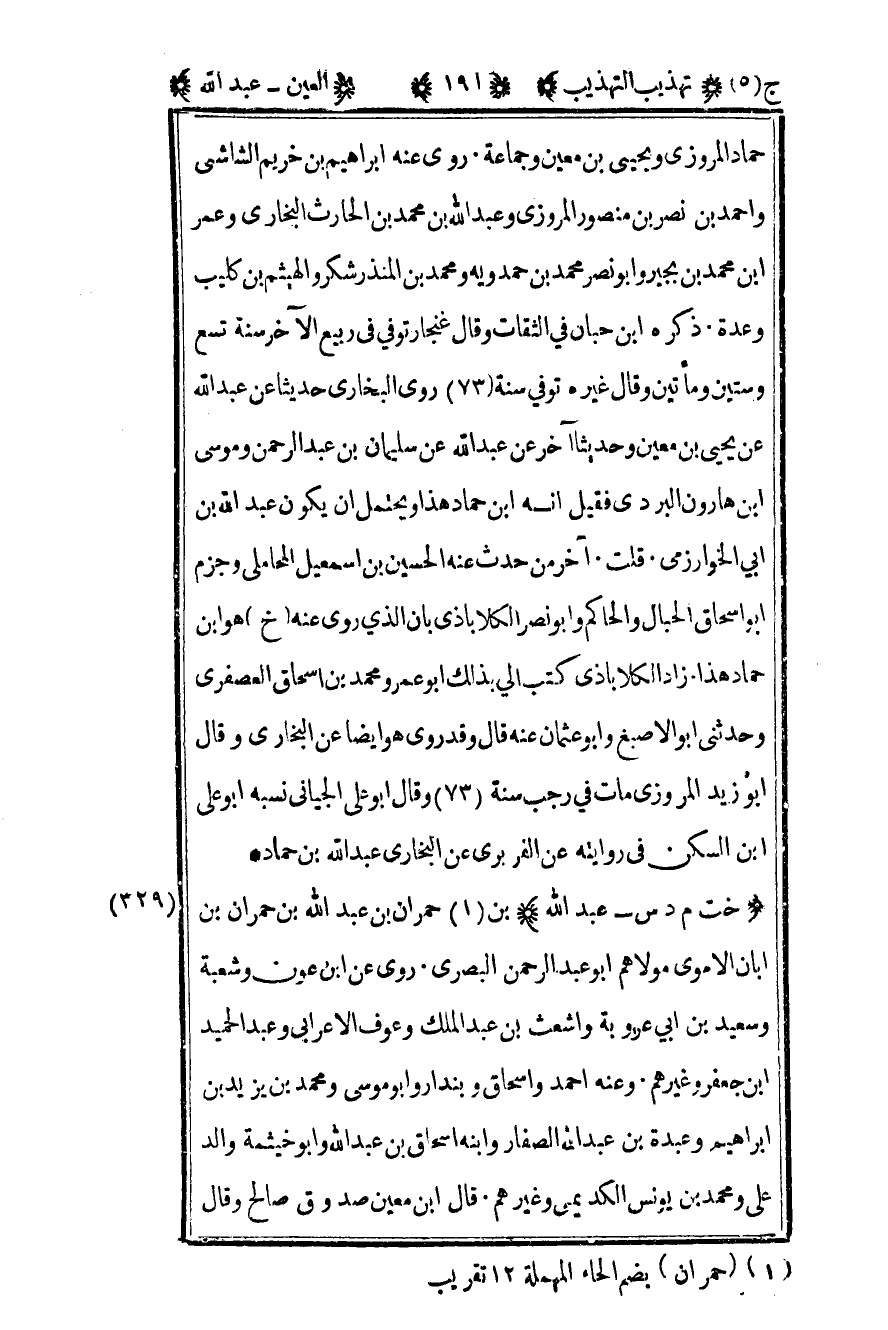 ج(٥) ﴿ تهذيب التهذيب ﴾ ﴿ ١٩١ ﴾ ﴿ العين ـ عبد الله ﴾
حماد المروزى ويحيى بن معين وجماعة ٠ روى عنه ابراهيم بن خريم الشاشى
واحمد بن نصر بن منصور المروزى وعبد الله بن محمد بن الحارث البخارى وعمر
ابن محمد بن بجير وابونصر محمد بن حمدويه ومحمد بن المنذر شكر والهيثم بن كليب
وعدة ٠ ذكره ابن حبان في الثقات وقال غنجار توفي فى ربيع الآخر سنة تسع
وستين ومأتين وقال غيره توفي سنة (٧٣) روى البخارى حديثا عن عبد الله
عن يحيى بن معين وحديثا آخر عن عبد الله عن سليمان بن عبد الرحمن وموسى
ابن هارون البردى فقيل انه ابن حماد هذا ويحتمل ان يكون عبد الله بن
ابي الخوارزمى ٠ قلت ٠ آخر من حدث عنه الحسين بن اسمعيل المحاملى وجزم
ابو اسحاق الحبال والحاكم وابونصر الكلاباذى بان الذي روى عنه ( خ ) هو ابن
حماد هذا ٠ زاد الكلاباذى كتب الي بذلك ابو عمرو محمد بن اسحاق العصفرى
وحدثنى ابو الاصبغ وابو عثمان عنه قال وقد روى هو ايضا عن البخارى وقال
ابو زيد المروزى مات في رجب سنة (٧٣) وقال ابو على الجيانى نسبه ابو على
ابن السكن فى روايته عن الفربرى عن البخارى عبد الله بن حماد ٠
﴿ خت م د س ـ عبد الله ﴾ بن (١) حمران بن عبد الله بن حمران بن (٣٢٩)
ابان الاموى مولاهم ابو عبد الرحمن البصرى ٠ روى عن ابن عون وشعبة
وسعيد بن ابي عروبة واشعث بن عبد الملك وعوف الاعرابى وعبد الحميد
ابن جعفر وغيرهم ٠ وعنه احمد واسحاق وبندار وابو موسى ومحمد بن يزيد بن
ابراهيم وعبدة بن عبد الله الصفار وابنه اسحاق بن عبد الله وابو خيثمة والد
على ومحمد بن يونس الكديمى وغيرهم ٠ قال ابن معين صدوق صالح وقال
(١) (حمران) بضم الحاء المهملة ١٢ تقريب